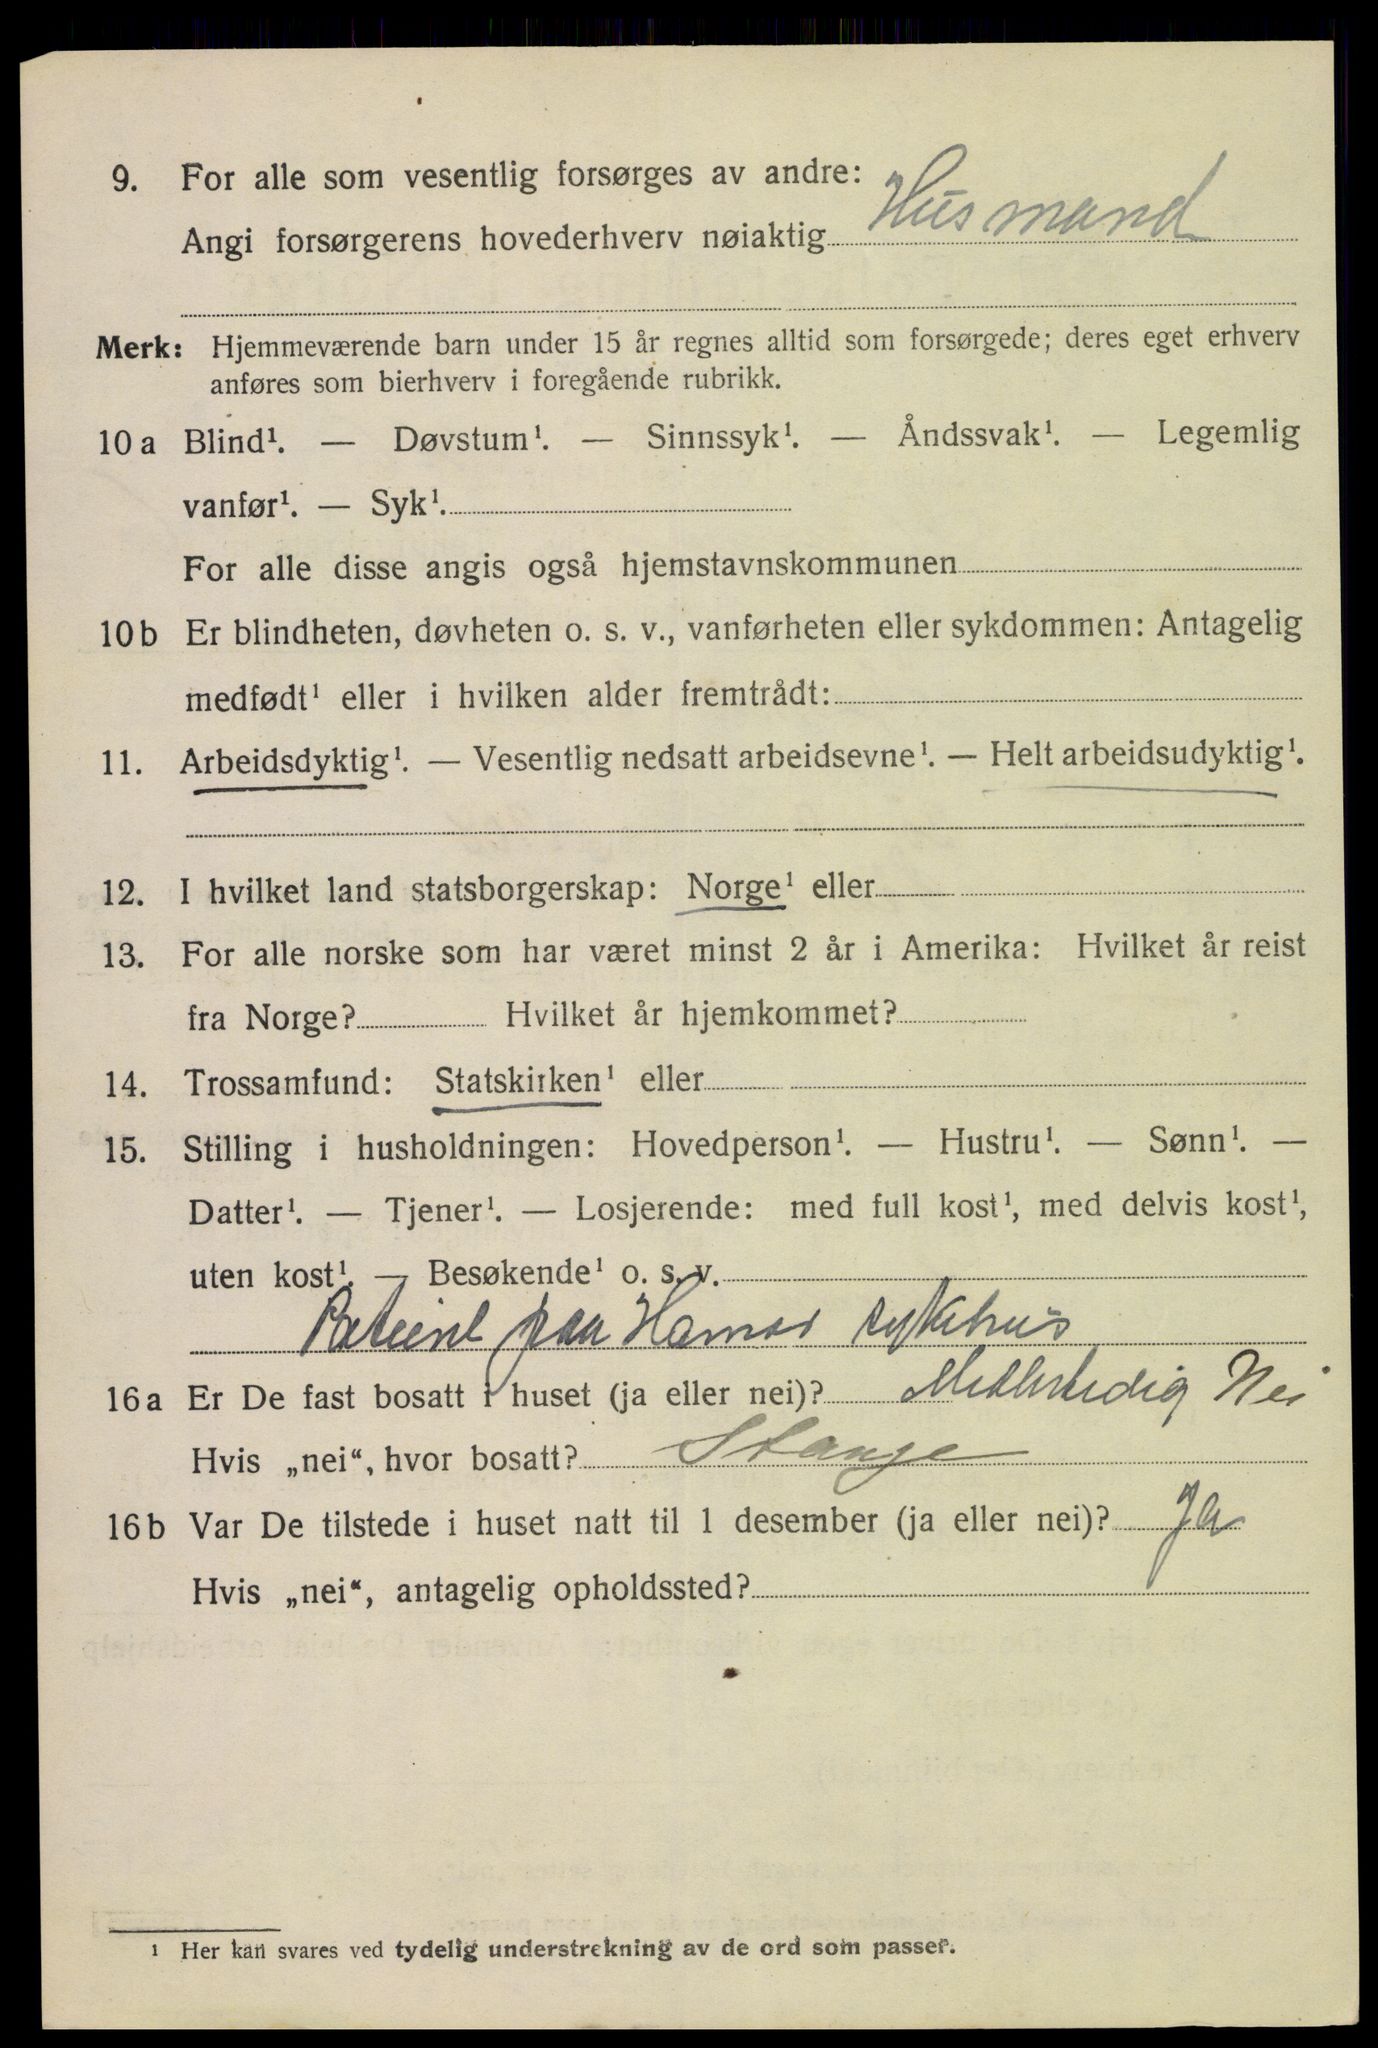 9. For alle som vesentlig forsørges av andre:
Angi forsørgerens hovederhverv nøiaktig Husmand
Merk: Hjemmeværende barn under 15 år regnes alltid som forsørgede; deres eget erhverv
anføres som bierhverv i foregående rubrikk.
10 a Blind¹. — Døvstum¹. — Sinnssyk¹. — Åndssvak¹. — Legemlig
vanfør¹. — Syk¹.
For alle disse angis også hjemstavnskommunen
10 b Er blindheten, døvheten o. s. v., vanførheten eller sykdommen: Antagelig
medfødt¹ eller i hvilken alder fremtrådt:
11. Arbeidsdyktig¹. — Vesentlig nedsatt arbeidsevne¹. — Helt arbeidsudyktig¹.
12. I hvilket land statsborgerskap: Norge¹ eller
13. For alle norske som har været minst 2 år i Amerika: Hvilket år reist
fra Norge? Hvilket år hjemkommet?
14. Trossamfund: Statskirken¹ eller
15. Stilling i husholdningen: Hovedperson¹. — Hustru¹. — Sønn¹. —
Datter¹. — Tjener¹. — Losjerende: med full kost¹, med delvis kost¹,
uten kost¹. — Besøkende¹ o. s. v.
Patient paa Hamar sykehus
16 a Er De fast bosatt i huset (ja eller nei)? Midlertidig Nei
Hvis „nei“, hvor bosatt? Stange
16 b Var De tilstede i huset natt til 1 desember (ja eller nei)? Ja
Hvis „nei“, antagelig opholdssted?
¹ Her kan svares ved tydelig understrekning av de ord som passer.